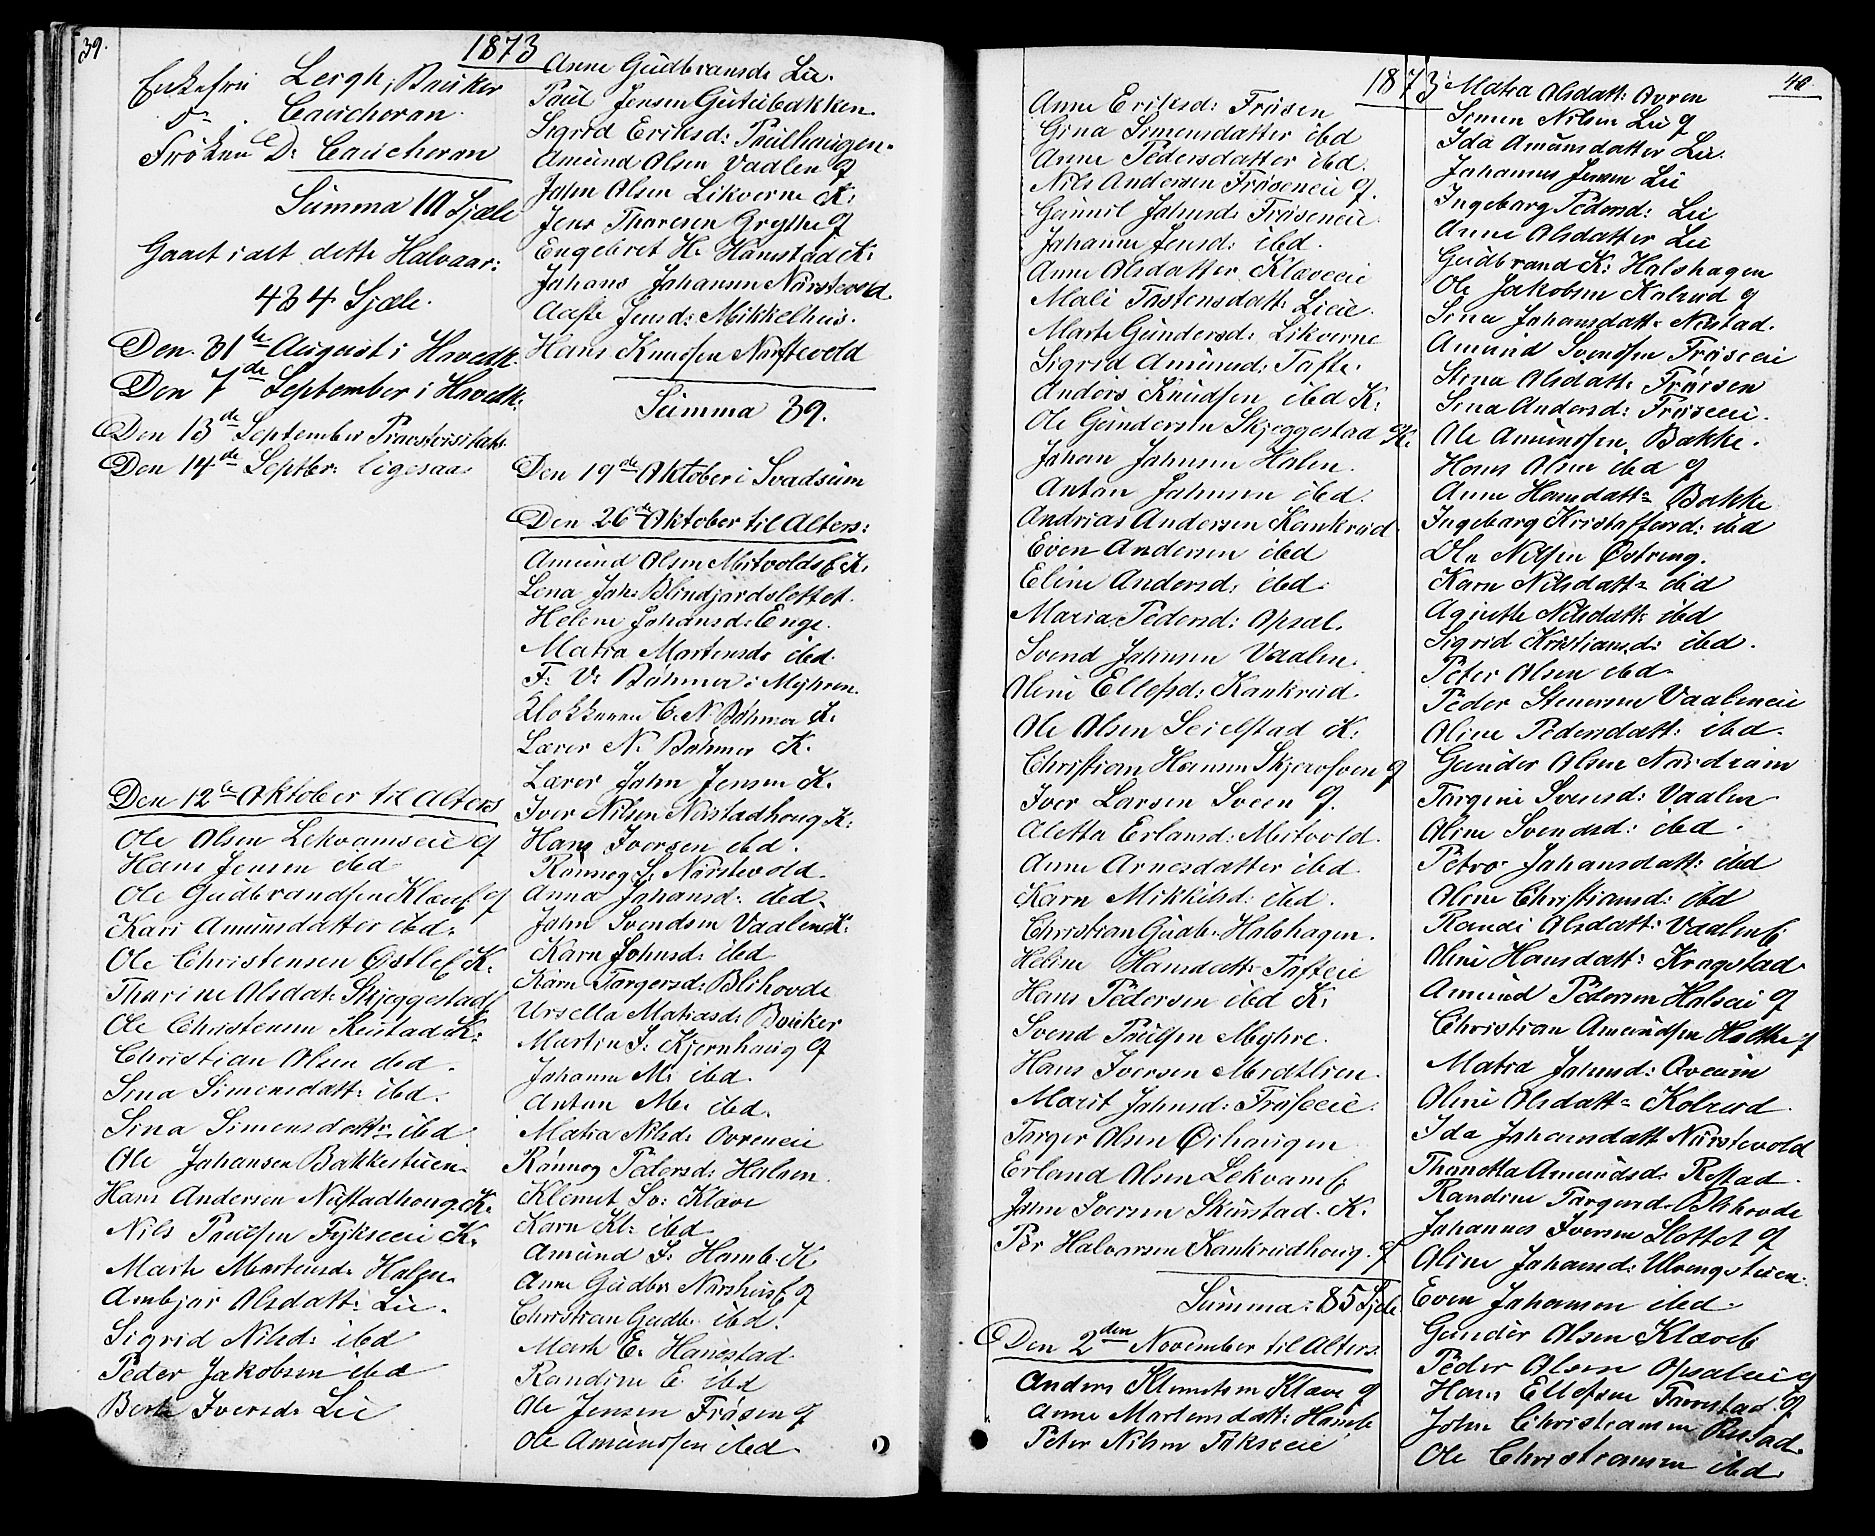 39.
1873
Enkefru Lergh, Bruker
Do. Caucheran
Frøken D: Caucheran
Summa 10 Sjæle
Gaaet i alt dette Halvaar:
434 Sjæle.
Den 31te August i Hovedk:
Den 7de September i Hovedk:
Den 13de September Præstevisitats
Den 14de Septbr: ligesaa.
Den 12te Oktober til Alters
Ole Olsen Lekvamseie g
Hans Jensen ibd
Ole Gudbrandsen Klævf. g
Kari Amundsdatter ibd.
Ole Christensen Østlef K.
Thorine Olsdat: Skjeggestad
Ole Christensen Rustad K:
Christian Olsen ibd.
Sina Simensdatt: ibd.
Sina Simensdatt: ibd
Ole Johansen Bakkestuen.
Hans Andersen Nustadhoug. K.
Nils Paulsen Fykseeie K.
Marte Martensd: Halen
Ambjør Olsdatt: Lie.
Sigrid Nilsd: ibd
Peder Jakobsen ibd
Berte Iversd: Lie
Anne Gudbransd: Lie.
Paul Jensen Gutubakken.
Sigrid Eriksd: Paulhaugen.
Amund Olsen Vaalen g
John Olsen Likverne K:
Jens Thoresen Grythe g
Engebret H. Hamstad K:
Johans Johansen Nørstevold.
Aaste Jensd: Mikkelhus.
Hans Knudsen Nørstevold
Summa 39.
Den 19de Oktober i Svadsum
Den 26de Oktober til Alters:
Amund Olsen Mitvoldsf K.
Lena Joh: Blindjordslettet.
Helene Johansd: Enge.
Matea Martensd: ibd.
F: V: Bøhmer i Myhren.
Klokkeren C. N. Bøhmer K.
Lærer N. Bøhmer K.
Lærer John Jensen K.
Iver Nilsen Nustadhoug K:
Hans Iversen ibd.
Rønnog S: Nørstevold.
Anna Johansd: ibd.
John Svendsen Vaalen K:
Karn Johnsd: ibd
Karn Torgersd: Blihovde
Ursella Matiasd: Bruker
Martin J: Kjernhaug g
Johann M: ibd.
Anton M. ibd.
Matia Nilsd: Ovreneie
Rønnog Pedersd: Halsen.
Klemet Sv: Klæve
Karn Kl: ibd
Amund J: Hamb. K
Anne Gudbr: Nørshusf g
Christian Gudb: ibd.
Marte E. Hanestad
Randine E. ibd
Ole Jensen Frøsen g
Ole Amundsen ibd.
1873
40.
Anne Eriksd: Frøsen
Gina Simensdatter ibd
Anne Pedersdatter ibd.
Nils Andersen Frøseneie g.
Gunnil Johnsd: Frøseneie.
Johanne Jensd: ibd.
Anne Olsdatter Klæveeie
Mali Tostensdatt: Lieie.
Marte Gundersd: Likverne
Sigrid Amunnd: Tofte.
Anders Knudsen ibd K:
Ole Gundersen Skjeggestad K.
Johan Johnsen Halen.
Anton Johnsen ibd.
Andrias Andersen Kankrud
Even Andersen ibd
Eline Andersd: ibd.
Maria Pedersd: Opsal.
Svend Johnsen Vaalen.
Oline Ellefsd: Kankrud.
Ole Olsen Seielstad K:
Christian Hansen Skjerofven g
Iver Larsen Sveen g.
Aletta Erlansd: Mitvold.
Anne Arnesdatter ibd.
Karn Mikkelsd: ibd.
Christian Gudb: Halshagen.
Heline Hansdatt: Tofteie
Hans Pedersen ibd K:
Svend Paulsen Myhre.
Hans Iversen Midtlien.
Marit Johnsd: Frøseeie.
Torger Olsen Øihaugen
Erland Olsen Lekvamf
John Iversen Skurstad. K.
Per Halvorsen Kankrudhoug. g
Summa: 85 Sjæle
Den 2den November til Alters.
Anders Klemetsen Klæve g
Anne Martensdatt: Hamb
Peter Nilsen Fykseeie
Matea Olsdatt: Ovren
Simen Nilsen Lie g
Ida Amunsdatter Lie.
Johannes Jensen Lie
Ingeborg Pedersd: Lie
Anne Olsdatter Lie
Gudbrand K: Halshagen
Ole Jakobsen Kolrud g
Sina Johansdatt: Nustad.
Amund Svendsen Frøseeie
Stina Olsdatt: Frøisen
Sina Andersd: Frøseeie.
Ole Amundsen Bakke.
Hans Olsen ibd g
Anne Hansdatt: Bakke
Ingeborg Kristoffersd: ibd
Ole Nilsen Østreng.
Karn Nilsdatt: ibd
Agnethe Nilsdatt: ibd
Sigrid Kristiansd: ibd.
Peter Olsen ibd.
Peder Stenersen Vaaleneie
Oline Pedersdatt: ibd.
Gunder Olsen Nordrum
Torgine Svensd: Vaalen
Oline Svendsd: ibd.
Petro Johansdatt: ibd
Oline Christiansd: ibd
Randi Olsdatt: Vaalenf.
Oline Hansdatt: Kragstad
Amund Pedersen Halseie g
Christian Amundsen Holthe g
Matea Johnsd: Øveim
Oline Olsdatt: Kolrud.
Ida Johansdatt Nørstevold
Thonetta Amundsd: Rostad.
Randine Torgersd. Blihovde
Johannes Iversen Slettet g
Oline Johansd: Ulvengstuen.
Even Johansen ibd.
Gunder Olsen Klæveb
Peder Olsen Opsaleie g
Hans Ellefsen Forrestad. g
John Christiansen Rustad.
Ole Christiansen ibd.